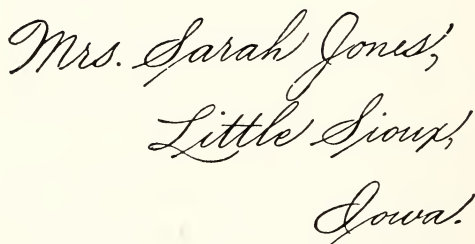 Mrs. Sarah Jones,
Little Sioux,
Iowa.